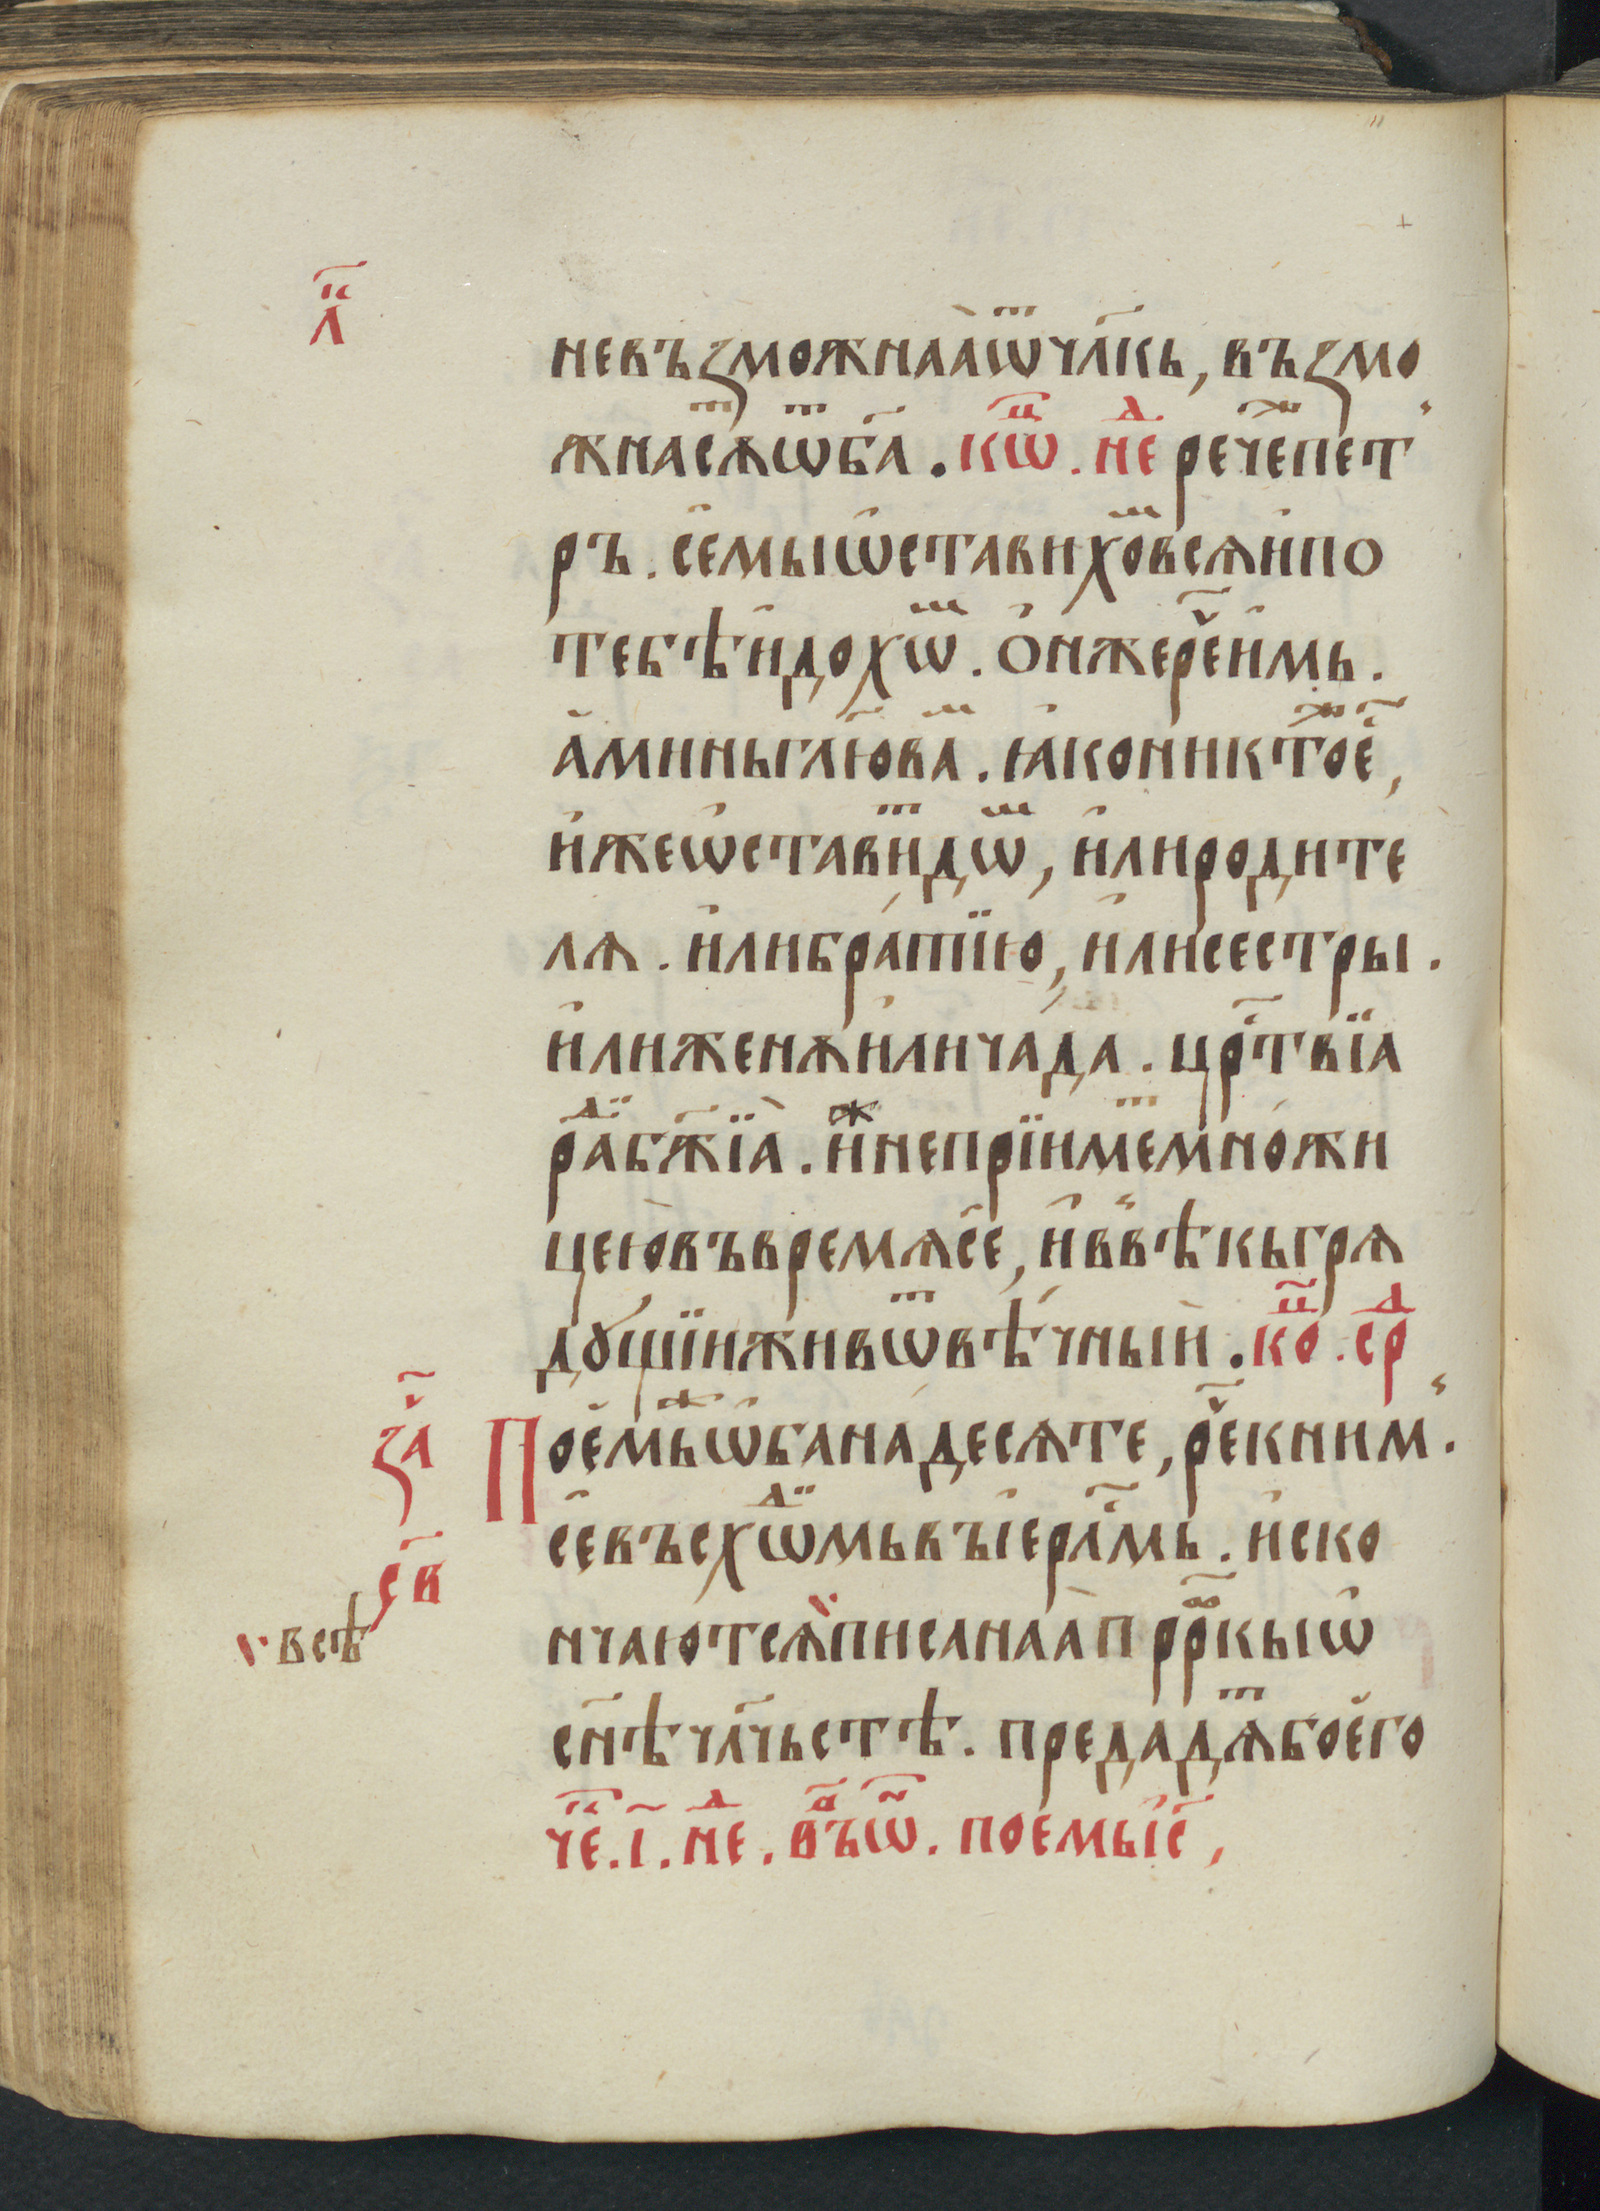 л҃к
невъꙁможнаа ѿ чл҃кь, въꙁмо
жна сѫⷮ ѿ б҃а. коⷩ҇ц. неⷣ рече жеⷤ пет
ръ. се мы ѡставихоⷨ всѧ и по
тебѣ идохѡⷨ. ѻн же реч҃ имь.
аминь гл҃ю ваⷨ. ꙗко никтоⷤ е҆с҃,
иже ѡставиⷮ дѡⷨ, или родите
лѧ. или братїю, или сестры.
или женѫ или чада. црⷭ҇твїа
раⷣ бж҃їа. иⷤ не прїимеⷮ множи
цею въ времѧ се, и в вѣкь грѧ
дꙋщїи живѡⷮ вѣчныи. коⷩ҇ц. срⷣ
ꙁач҃
с҃в
Поемь жⷤе ѡбанадесѧте, реч҃ к ним.
се въсхѡⷣимь въ іерⷭ҇л҃мь. и ско
нчаютсѧ писанаа прⷪ҇ркы ѡ
всѣ
сн҃ѣ чл҃чьстѣ. предадѧⷮ бо его
чеⷦ. і҃. неⷣ. въ ѡⷩ. поемь іс҃,